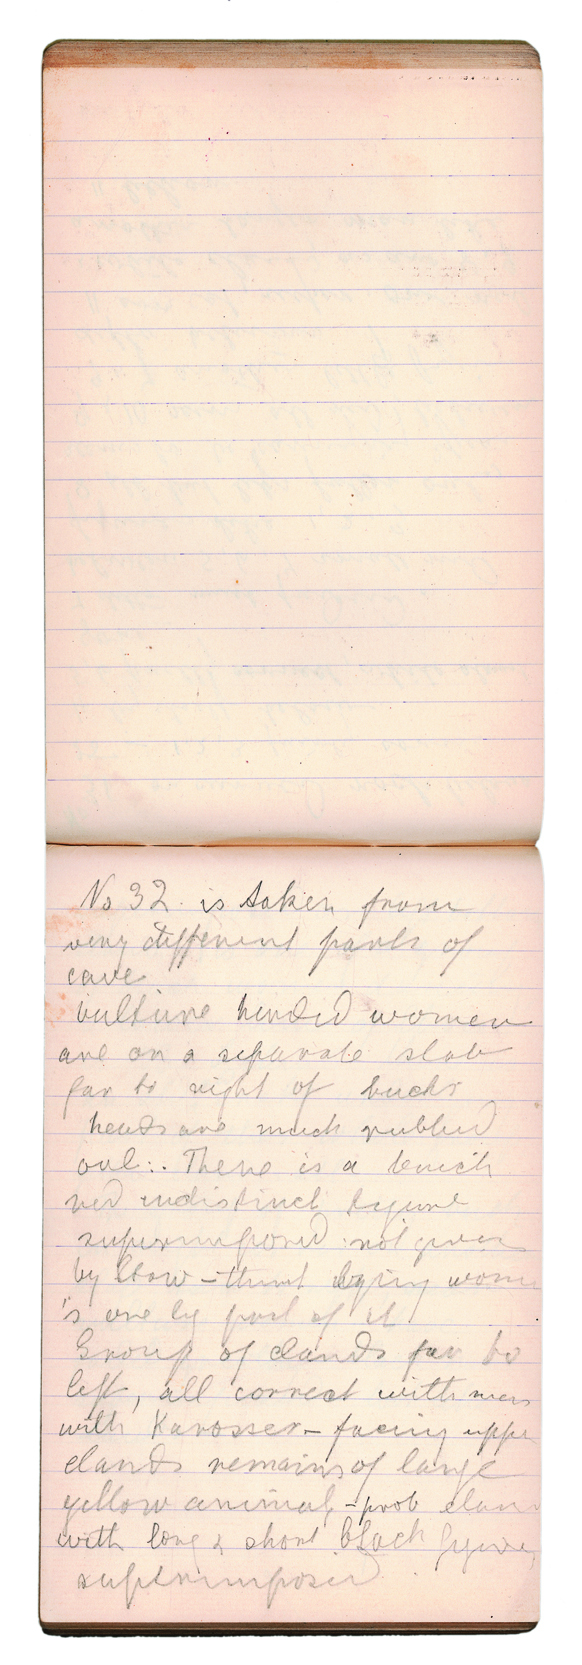 No 32 is taken from
very different parts of
cave
vulture headed women
are on a separate slab
far to right of bucks
heads are much rubbed
out. There is a
red indistinct figure
superimposed not given
by Stow – women
is one leg part of it
Group of elands far to
left, all correct with men
with Karosses – facing upper
elands remains of large
yellow animal, – prob eland
with long & short black figures
superimposed